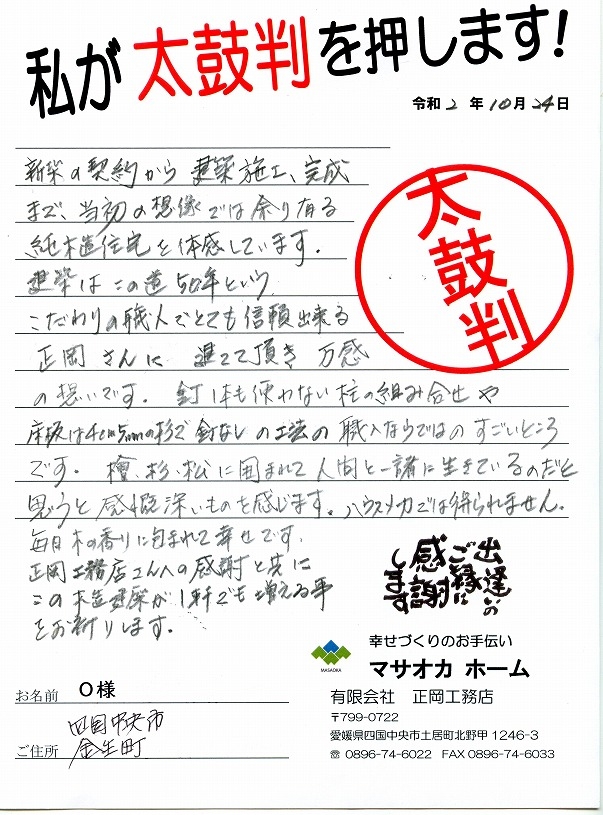 私が太鼓判を押します!
令和 2 年 10 月 24 日
新築の契約から 建築施工、完成
まで、当初の想像では余り有る
純木造住宅を体感しています.
建築はこの道50年という
こだわりの職人でとても信頼出来る
正岡さんに 建てて頂き 万感
の想いです. 釘1本も使わない柱の組み合せや
床板は4cm5mmの杉で釘なしの工法の 職人ならではの すごいところ
です. 檜、杉、松に囲まれて人間と一諸に生きているのだと
思うと感慨深いものを感じます。ハウスメーカでは得られません.
毎日木の香りに包まれて幸せです.
正岡工務店さんへの感謝と共に
この木造建築が1軒でも増える事
をお祈りします.
太鼓判
出逢いの
ご縁に
感謝
します
MASAOKA
幸せづくりのお手伝い
マサオカ ホーム
有限会社 正岡工務店
〒799-0722
愛媛県四国中央市土居町北野甲1246-3
☏ 0896-74-6022 FAX 0896-74-6033
お名前 O様
ご住所 四国中央市
金生町